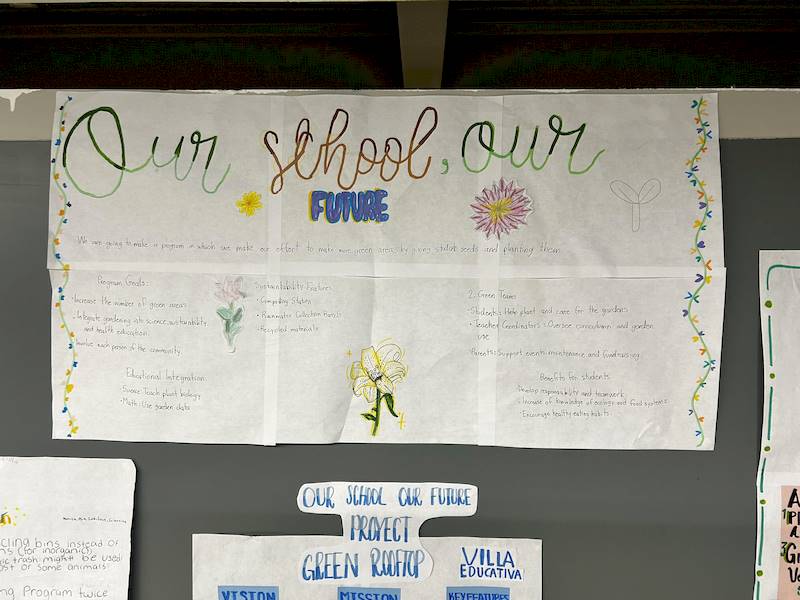 Our school, our
FUTURE
We are going to make a program in which we make our effort to make more green areas by giving students seeds and planting them
Program Goals:
• Increase the number of green areas
• Integrate gardening into science, sustainability,
and health education.
Involve each person of the community
Educational Integration:
• Science: Teach plant biology
• Math: Use garden data
Sustainability Features
• Composting Station
• Rainwater Collection Barrels
• Recycled materials
2. Green Teams
Students: Help plant and care for the gardens
• Teacher Coordinators: Oversee curriculum and garden
use
Parents: Support events, maintenance and fundraising
Benefits for students
Develop responsibility and teamwork
• Increase of knowledge of ecology and food systems
• Encourage healthy eating habits
OUR SCHOOL OUR FUTURE
PROYECT
GREEN ROOFTOP
VILLA
EDUCATIVA
VISION
MISSION
KEY FEATURES
cling bins instead of
ns (for inorganic)
ic trash might be used
ost or some animals
ng Program twice